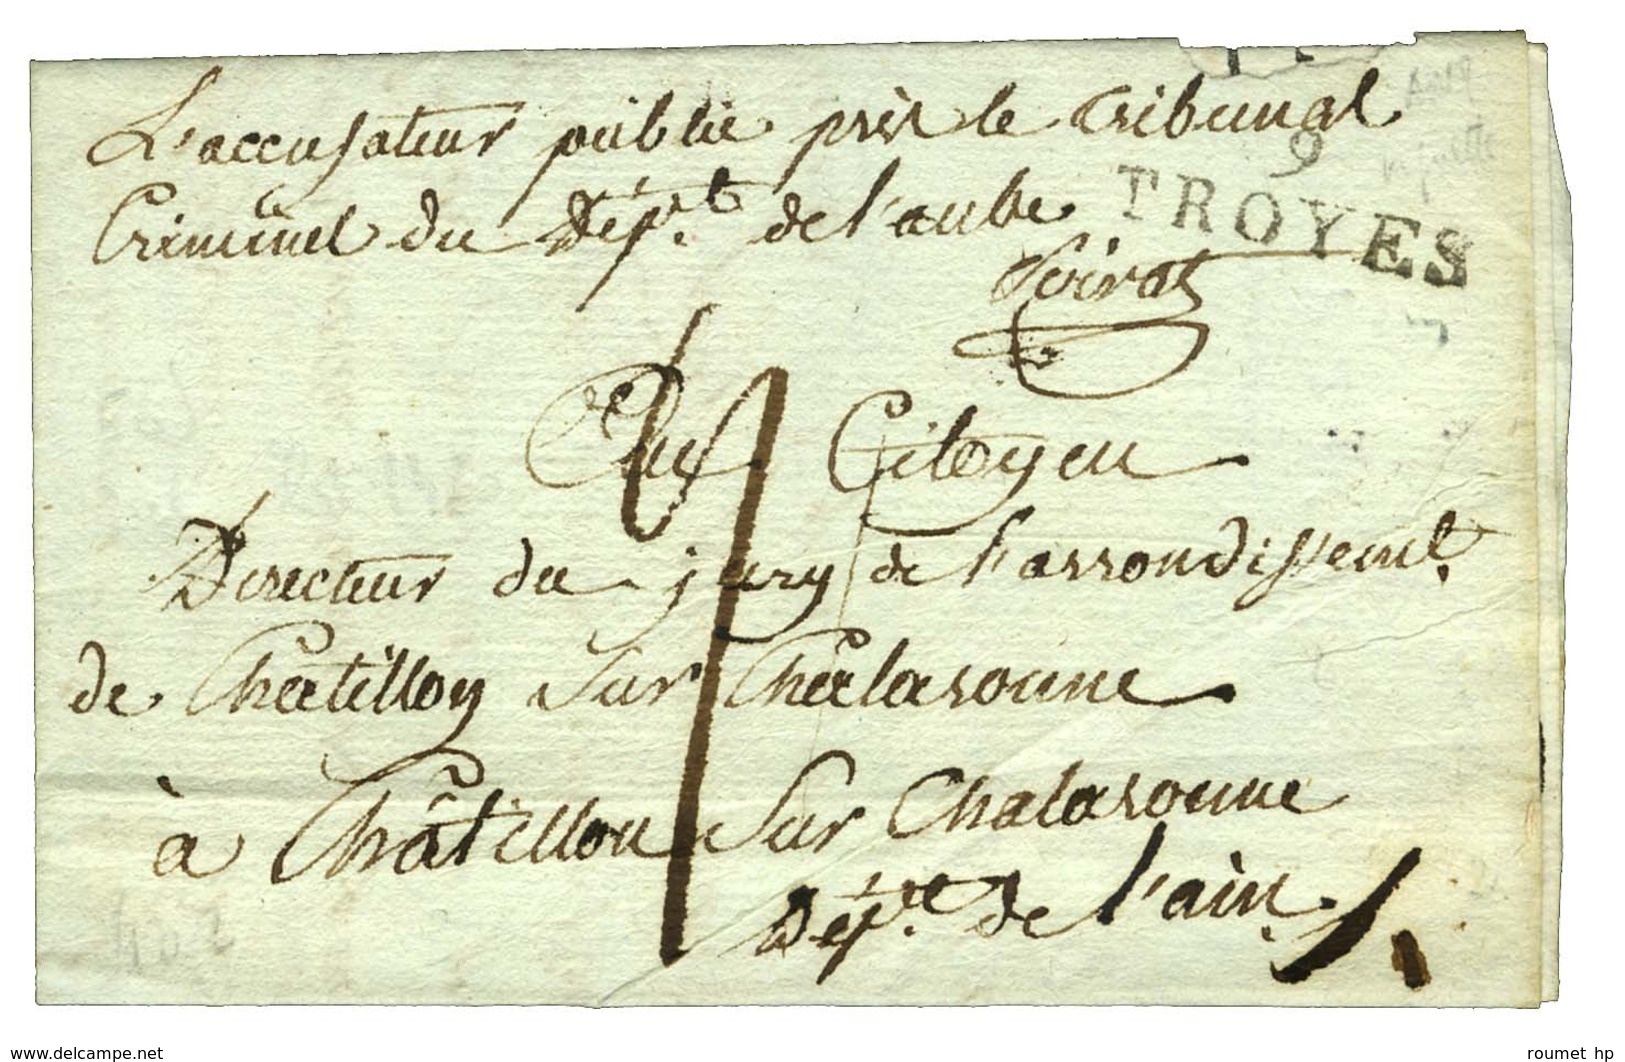 L'accusateur public près le tribunal
9
Criminel du Dép.t de l'aube
TROYES
Au Citoyen
Directeur du jury de l'arrondissem.t
de Châtillon sur Châlaronne
à Châtillon sur Chalaronne
Dép.t de l'ain
www.delcampe.net
roumet hp